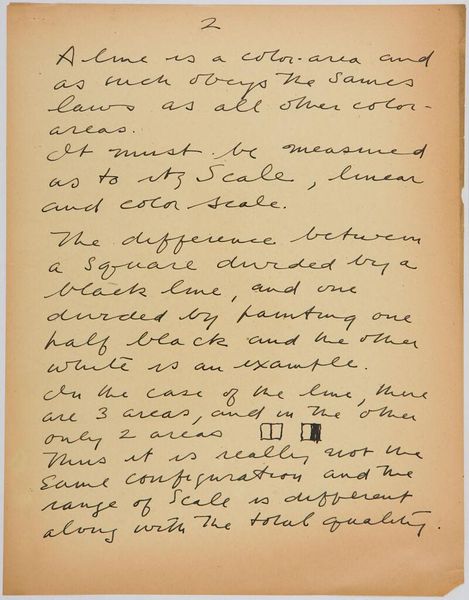 2
A line is a color-area and
as such obeys the same
laws as all other color-
areas.
It must be measured
as to its Scale, linear
and color scale.
The difference between
a Square divided by a
black line, and one
divided by painting one
half black and the other
white is an example.
In the case of the line, there
are 3 areas, and in the other
only 2 areas
Thus it is really not the
same configuration and the
range of Scale is different
along with the total quality.